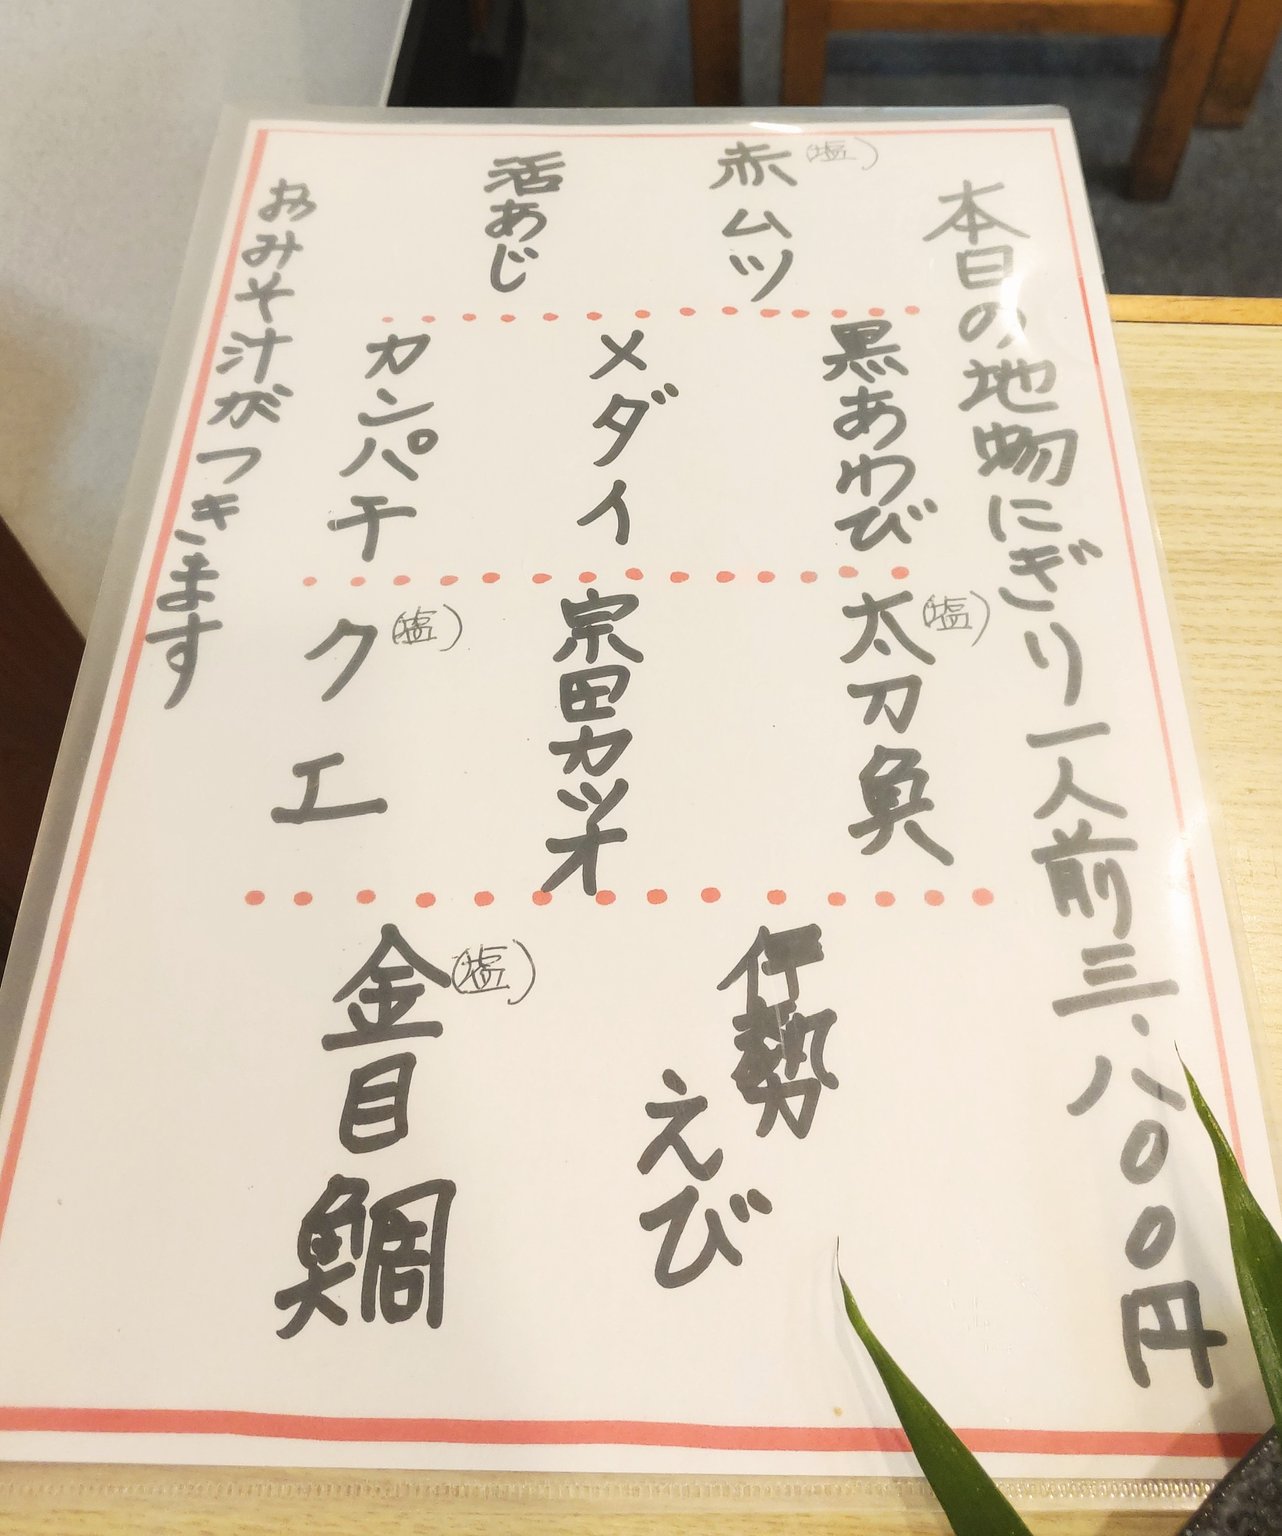 本日の地物にぎり一人前三.八〇〇円
赤ムツ(塩)
活あじ
黒あわび
メダイ
カンパチ
太刀魚(塩)
宗田カツオ
クエ(塩)
伊勢えび
金目鯛(塩)
おみそ汁がつきます